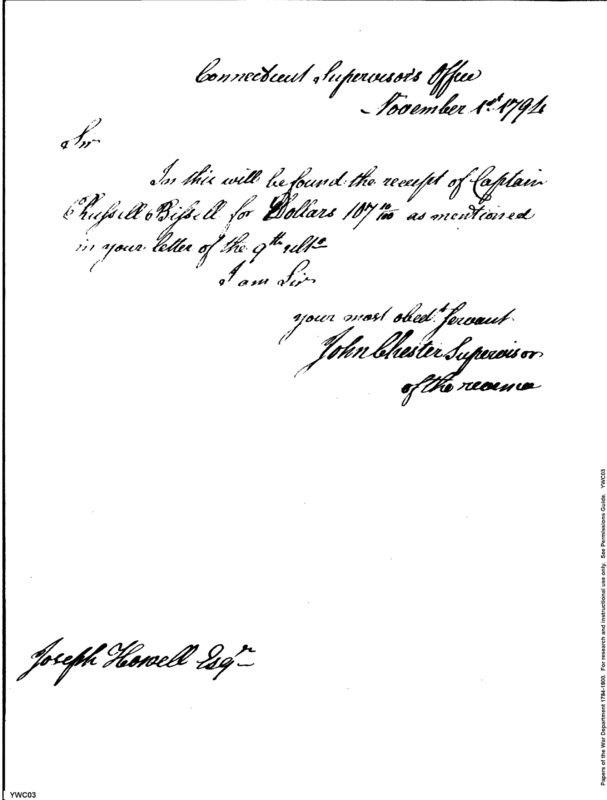 Connecticut Supervisor's Office
November 1st 1794
Sir
In this will be found the receipt of Captain
Russell Bissell for Dollars 107 10/100 as mentioned
in your letter of the 9th ulto
I am Sir
your most obedt Servant
John Chester Supervisor
of the revenue
Joseph Howell Esqr
Papers of the War Department 1784-1800. For research and instructional use only. See Permissions Guide. YWC03
YWC03